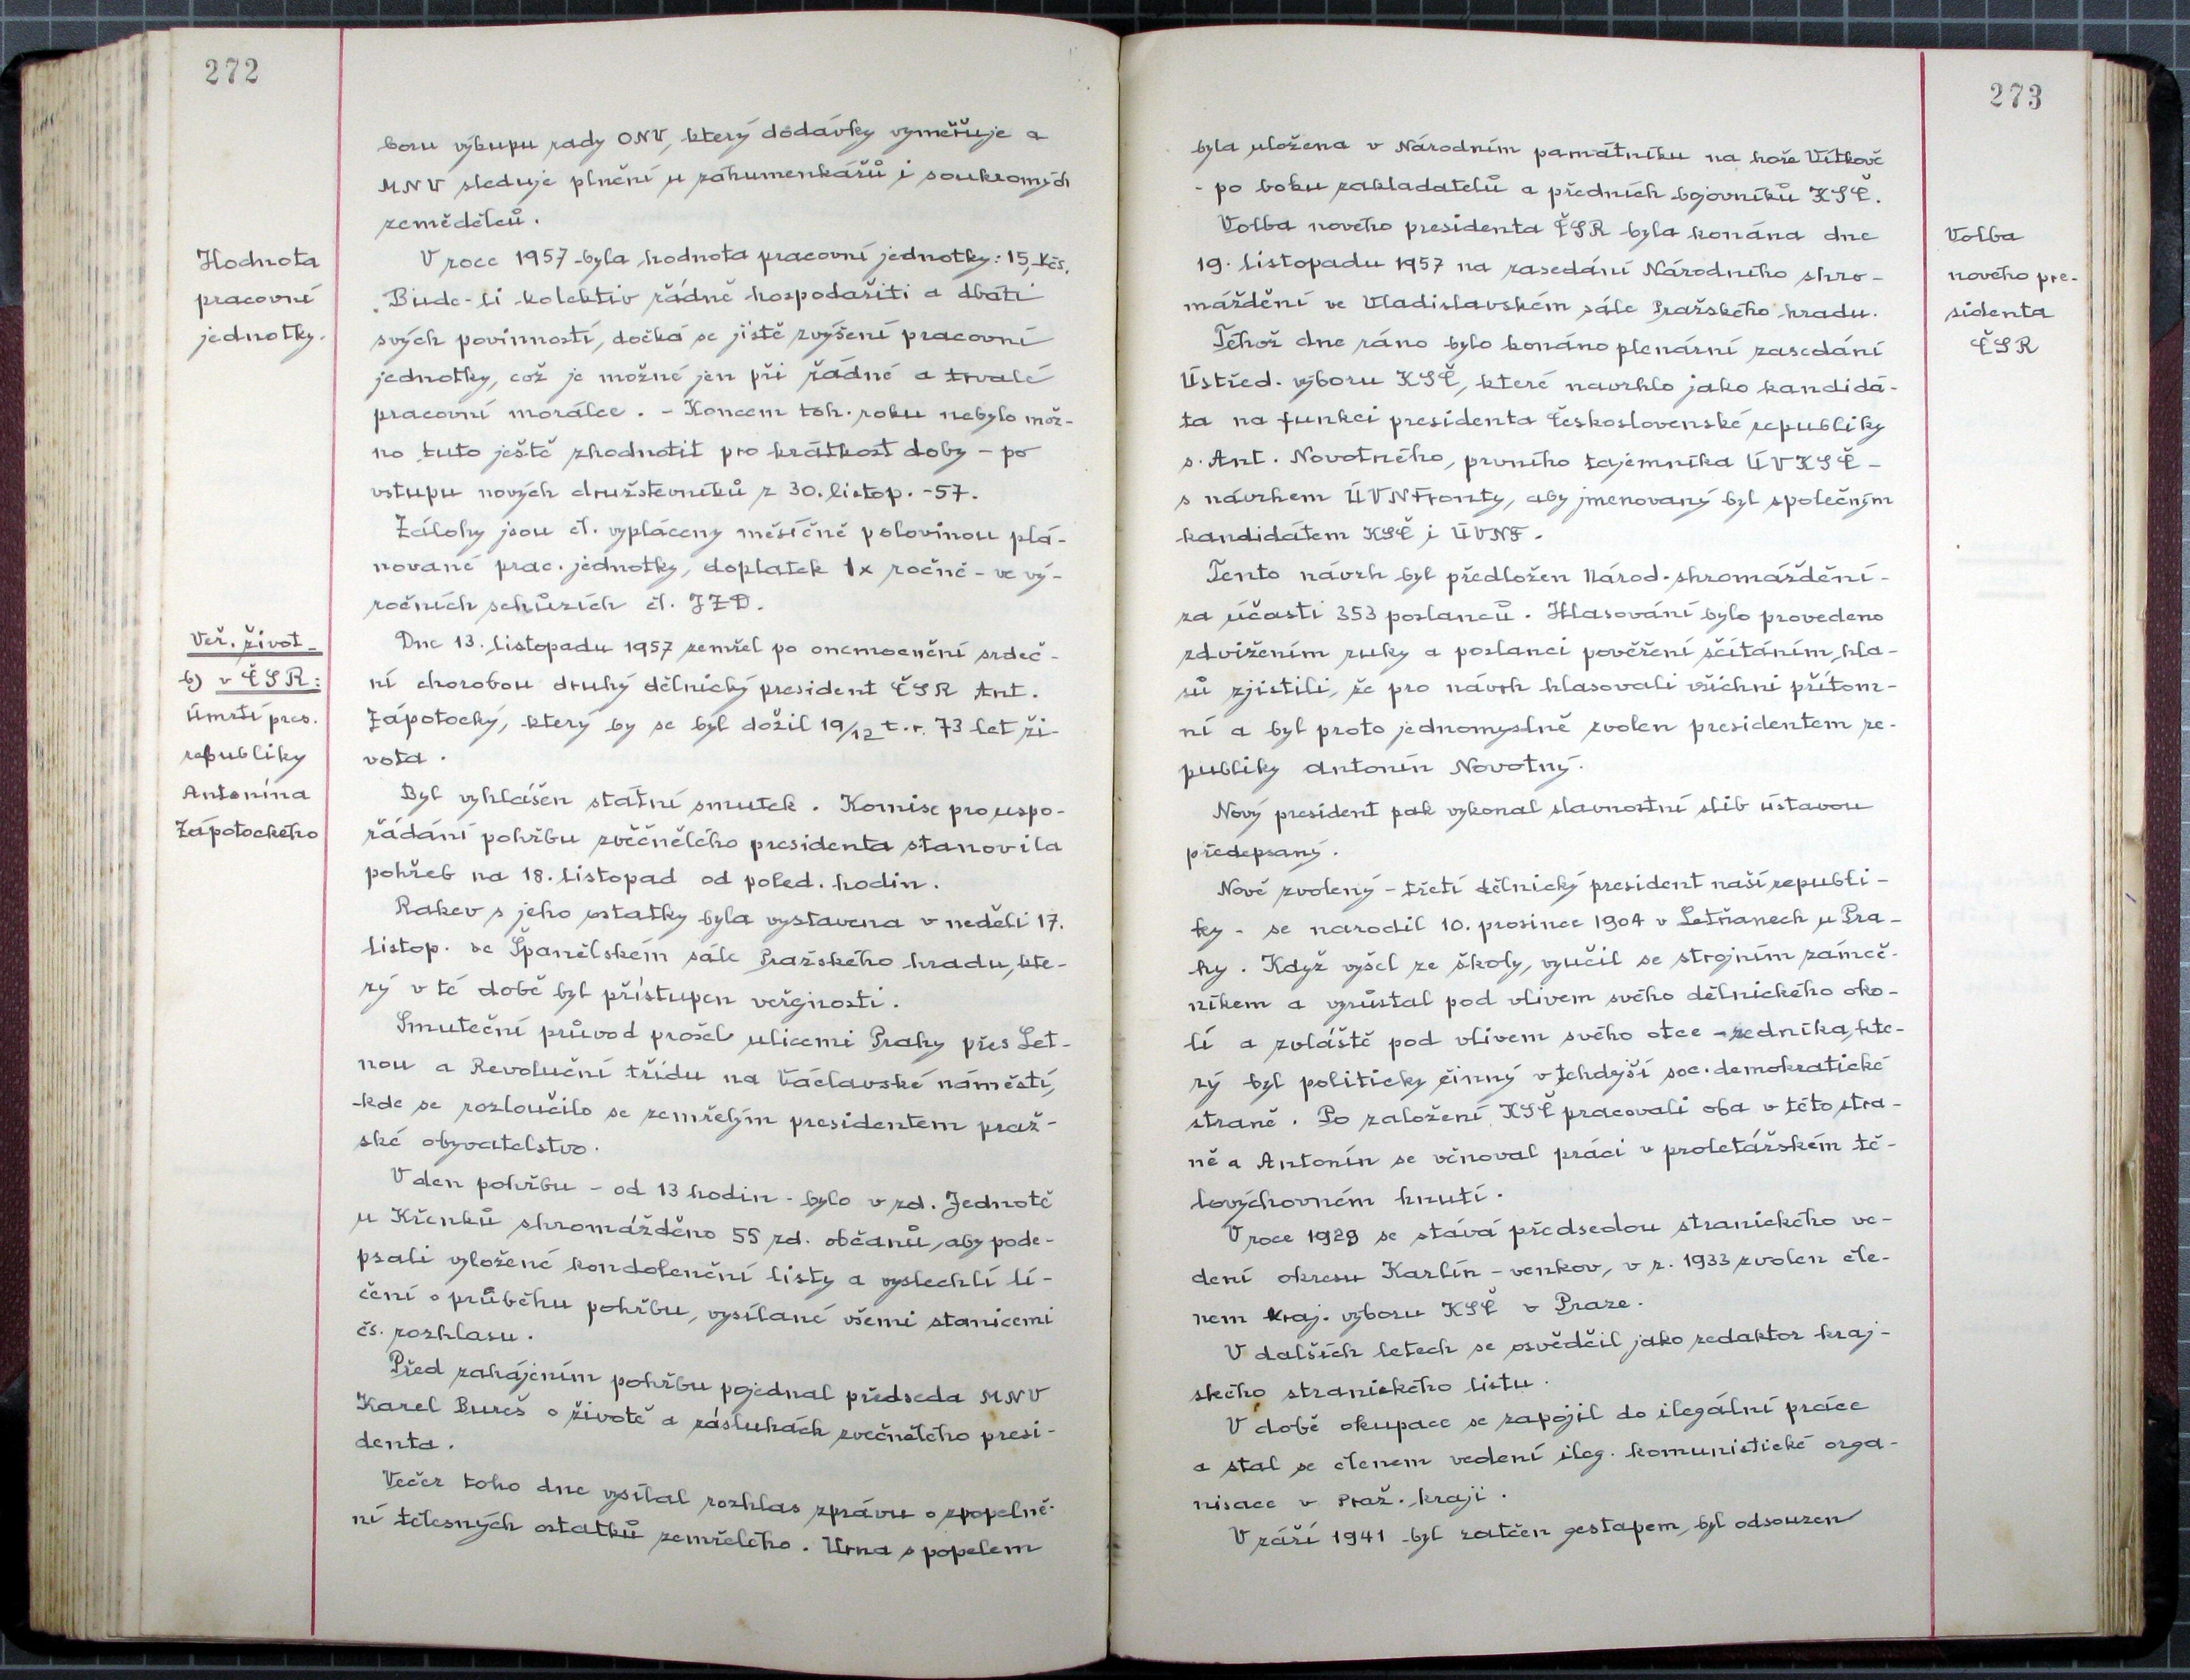 272
boru výkupu rady ONV, který dodávky vyměřuje a
MNV sleduje plnění u záhumenkářů i soukromých
zemědělců.
Hodnota
pracovní
jednotky.
V roce 1957 byla hodnota pracovní jednotky: 15,-Kčs.
Bude-li kolektiv řádně hospodařiti a dbáti
svých povinností, dočká se jistě zvýšení pracovní
jednotky, což je možné jen při řádné a trvalé
pracovní morálce. - Koncem toh. roku nebylo mož-
no tuto ještě zhodnotit pro krátkost doby - po
vstupu nových družstevníků z 30. listop. -57.
Zálohy jsou čl. vypláceny měsíčně polovinou plá-
nované prac. jednotky, doplatek 1x ročně - ve vý-
ročních schůzích čl. JZD.
Veř. život -
b) v ČSR:
Úmrtí pres.
republiky
Antonína
Zápotockého
Dne 13. listopadu 1957 zemřel po onemocnění srdeč-
ní chorobou druhý dělnický president ČSR Ant.
Zápotocký, který by se byl dožil 19/12 t.r. 73 let ži-
vota.
Byl vyhlášen státní smutek. Komise pro uspo-
řádání pohřbu zvěčnělého presidenta stanovila
pohřeb na 18. listopad od poled. hodin.
Rakev s jeho ostatky byla vystavena v neděli 17.
listop. ve Španělském sále Pražského hradu, kte-
rý v té době byl přístupen veřejnosti.
Smuteční průvod prošel ulicemi Prahy přes Let-
nou a Revoluční třídu na Václavské náměstí,
kde se rozloučilo se zemřelým presidentem praž-
ské obyvatelstvo.
V den pohřbu - od 13 hodin - bylo v zd. Jednotě
u Křenků shromážděno 55 zd. občanů, aby pode-
psali vyložené kondolenční listy a vyslechli lí-
čení o průběhu pohřbu, vysílané všemi stanicemi
čs. rozhlasu.
Před zahájením pohřbu pojednal předseda MNV
Karel Bureš o životě a zásluhách zvečnělého presi-
denta.
Večer toho dne vysílal rozhlas zprávu o zpopelně-
ní tělesných ostatků zemřelého. Urna s popelem
273
byla uložena v Národním památníku na hoře Vítkově
- po boku zakladatelů a předních bojovníků KSČ.
Volba
nového pre-
sidenta
ČSR
Volba nového presidenta ČSR byla konána dne
19. listopadu 1957 na zasedání Národního shro-
máždění ve Vladislavském sále Pražského hradu.
Téhož dne ráno bylo konáno plenární zasedání
Ústřed. výboru KSČ, které navrhlo jako kandidá-
ta na funkci presidenta Československé republiky
s. Ant. Novotného, prvního tajemníka ÚVKSČ -
s návrhem ÚVNFronty, aby jmenovaný byl společným
kandidátem KSČ i ÚVNF.
Tento návrh byl předložen Národ. shromáždění -
za účasti 353 poslanců. Hlasování bylo provedeno
zdvižením ruky a poslanci pověření sčítáním hla-
sů zjistili, že pro návrh hlasovali všichni přítom-
ní a byl proto jednomyslně zvolen presidentem re-
publiky Antonín Novotný.
Nový president pak vykonal slavnostní slib ústavou
předepsaný.
Nově zvolený - třetí dělnický president naší republi-
ky - se narodil 10. prosince 1904 v Letňanech u Pra-
hy. Když vyšel ze školy, vyučil se strojním zámeč-
níkem a vyrůstal pod vlivem svého dělnického oko-
lí a zvláště pod vlivem svého otce - zedníka, kte-
rý byl politicky činný v tehdejší soc. demokratické
straně. Po založení KSČ pracovali oba v této stra-
ně a Antonín se věnoval práci v proletářském tě-
lovýchovném hnutí.
V roce 1929 se stává předsedou stranického ve-
dení okresu Karlín - venkov, v r. 1933 zvolen čle-
nem kraj. výboru KSČ v Praze.
V dalších letech se osvědčil jako redaktor kraj-
ského stranického listu.
V době okupace se zapojil do ilegální práce
a stal se členem vedení ileg. komunistické orga-
nisace v Praž. kraji.
V září 1941 byl zatčen gestapem, byl odsouzen